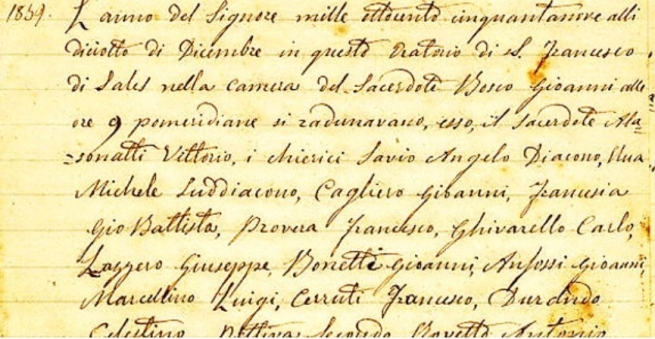 1859. L'anno del Signore mille ottocento cinquantanove alli
diciotto di Dicembre in questo Oratorio di S. Francesco
di Sales nella camera del Sacerdote Bosco Gioanni alle
ore 9 pomeridiane si radunavano, esso, il Sacerdote Ala-
=sonatti Vittorio, i chierici Savio Angelo Diacono, Rua
Michele Suddiacono, Cagliero Gioanni, Francesia
Gio Battista, Provera Francesco, Ghivarello Carlo,
Lazzero Giuseppe, Bonetti Gioanni, Anfossi Gioanni,
Marcellino Luigi, Cerruti Francesco, Durando
Celestino, Pettiva Secondo, Rovetto Antonio